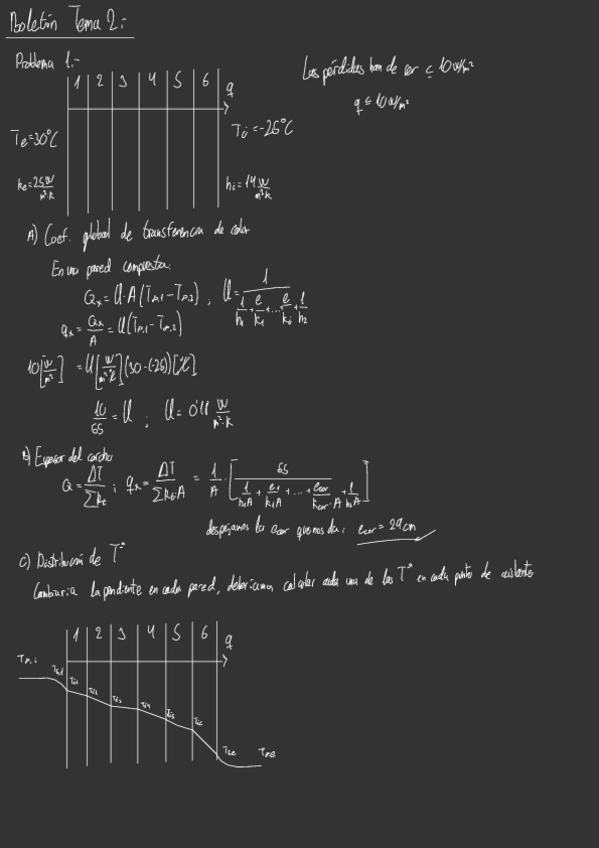 Boletín Tema 2:
Problema 1.-
1 2 3 4 5 6 q
Las pérdidas han de ser ≤ 10 w/m²
q ≤ 10 w/m²
Te=30°C
Ti=-25°C
he=25 W/m²·K
hi=14 W/m²·K
A) Coef. global de transferencia de calor
En una pared compuesta:
Qx = U·A(T∞,1-T∞,2) ; U = 1/(1/h1 + e/k1 + ... + e/ki + 1/h2)
qx = Qx/A = U(T∞,1-T∞,2)
10[W/m²] = U[W/m²·K](30-(-25))[K]
10/65 = U ; U = 0'11 W/m²·K
B) Espesor del corcho
Q = ΔT/ΣRt ; qx = ΔT/ΣRt·A = 1/A·[65/(1/h1A + e1/k1A + ... + ecor/kcor·A + 1/h2A)]
despejamos la ecor que nos da: ecor = 29cm
C) Distribución de Tª
Cambiaría la pendiente en cada pared, deberíamos calcular cada una de las Tª en cada punto de
1 2 3 4 5 6 q